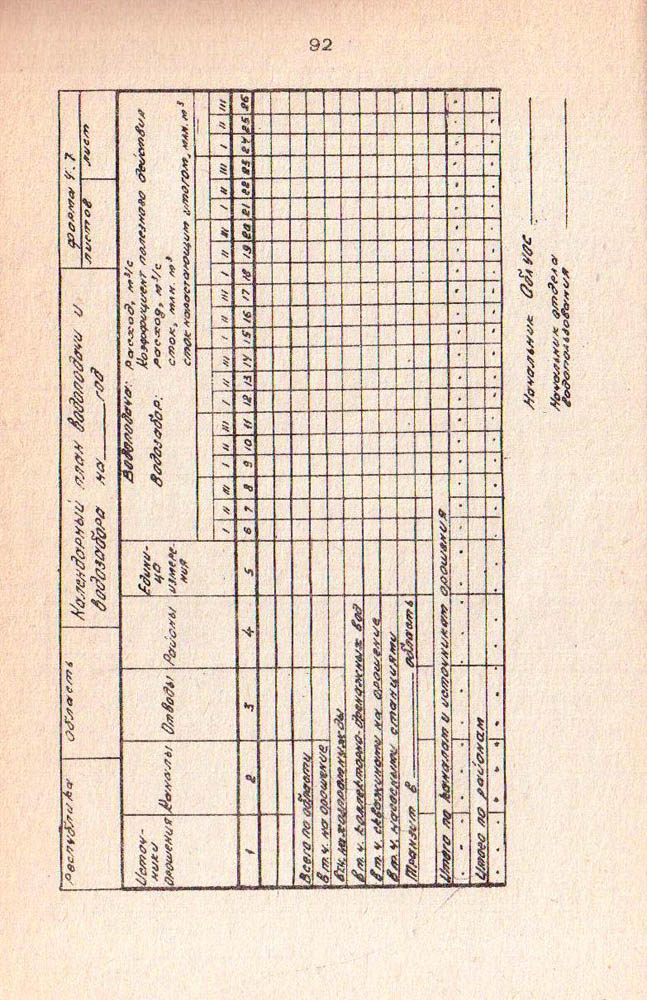 92
Республика
область
Календарный план водоподачи и
водозабора на ______ год
Форма 4.7
листов
лист
Источ-
ники
орошения
Каналы
Отводы
Районы
Едини-
ца
измере-
ния
Водоподача: расход, м³/с
Коэффициент полезного действия
Водозабор: расход, м³/с
сток, млн. м³
сток нарастающим итогом, млн. м³
I II III I II III I II III I II III I II III I II III I II III
1 2 3 4 5 6 7 8 9 10 11 12 13 14 15 16 17 18 19 20 21 22 23 24 25 26
Всего по области
в т.ч. на орошение
в т.ч. на хозпромнужды
в т.ч. коллекторно-дренажных вод
в т.ч. скважинами на орошение
в т.ч. насосными станциями
Транзит в ______ область
Итого по каналам и источникам орошения
Итого по районам
Начальник ОблУОС ______
Начальник отдела
водопользования ______